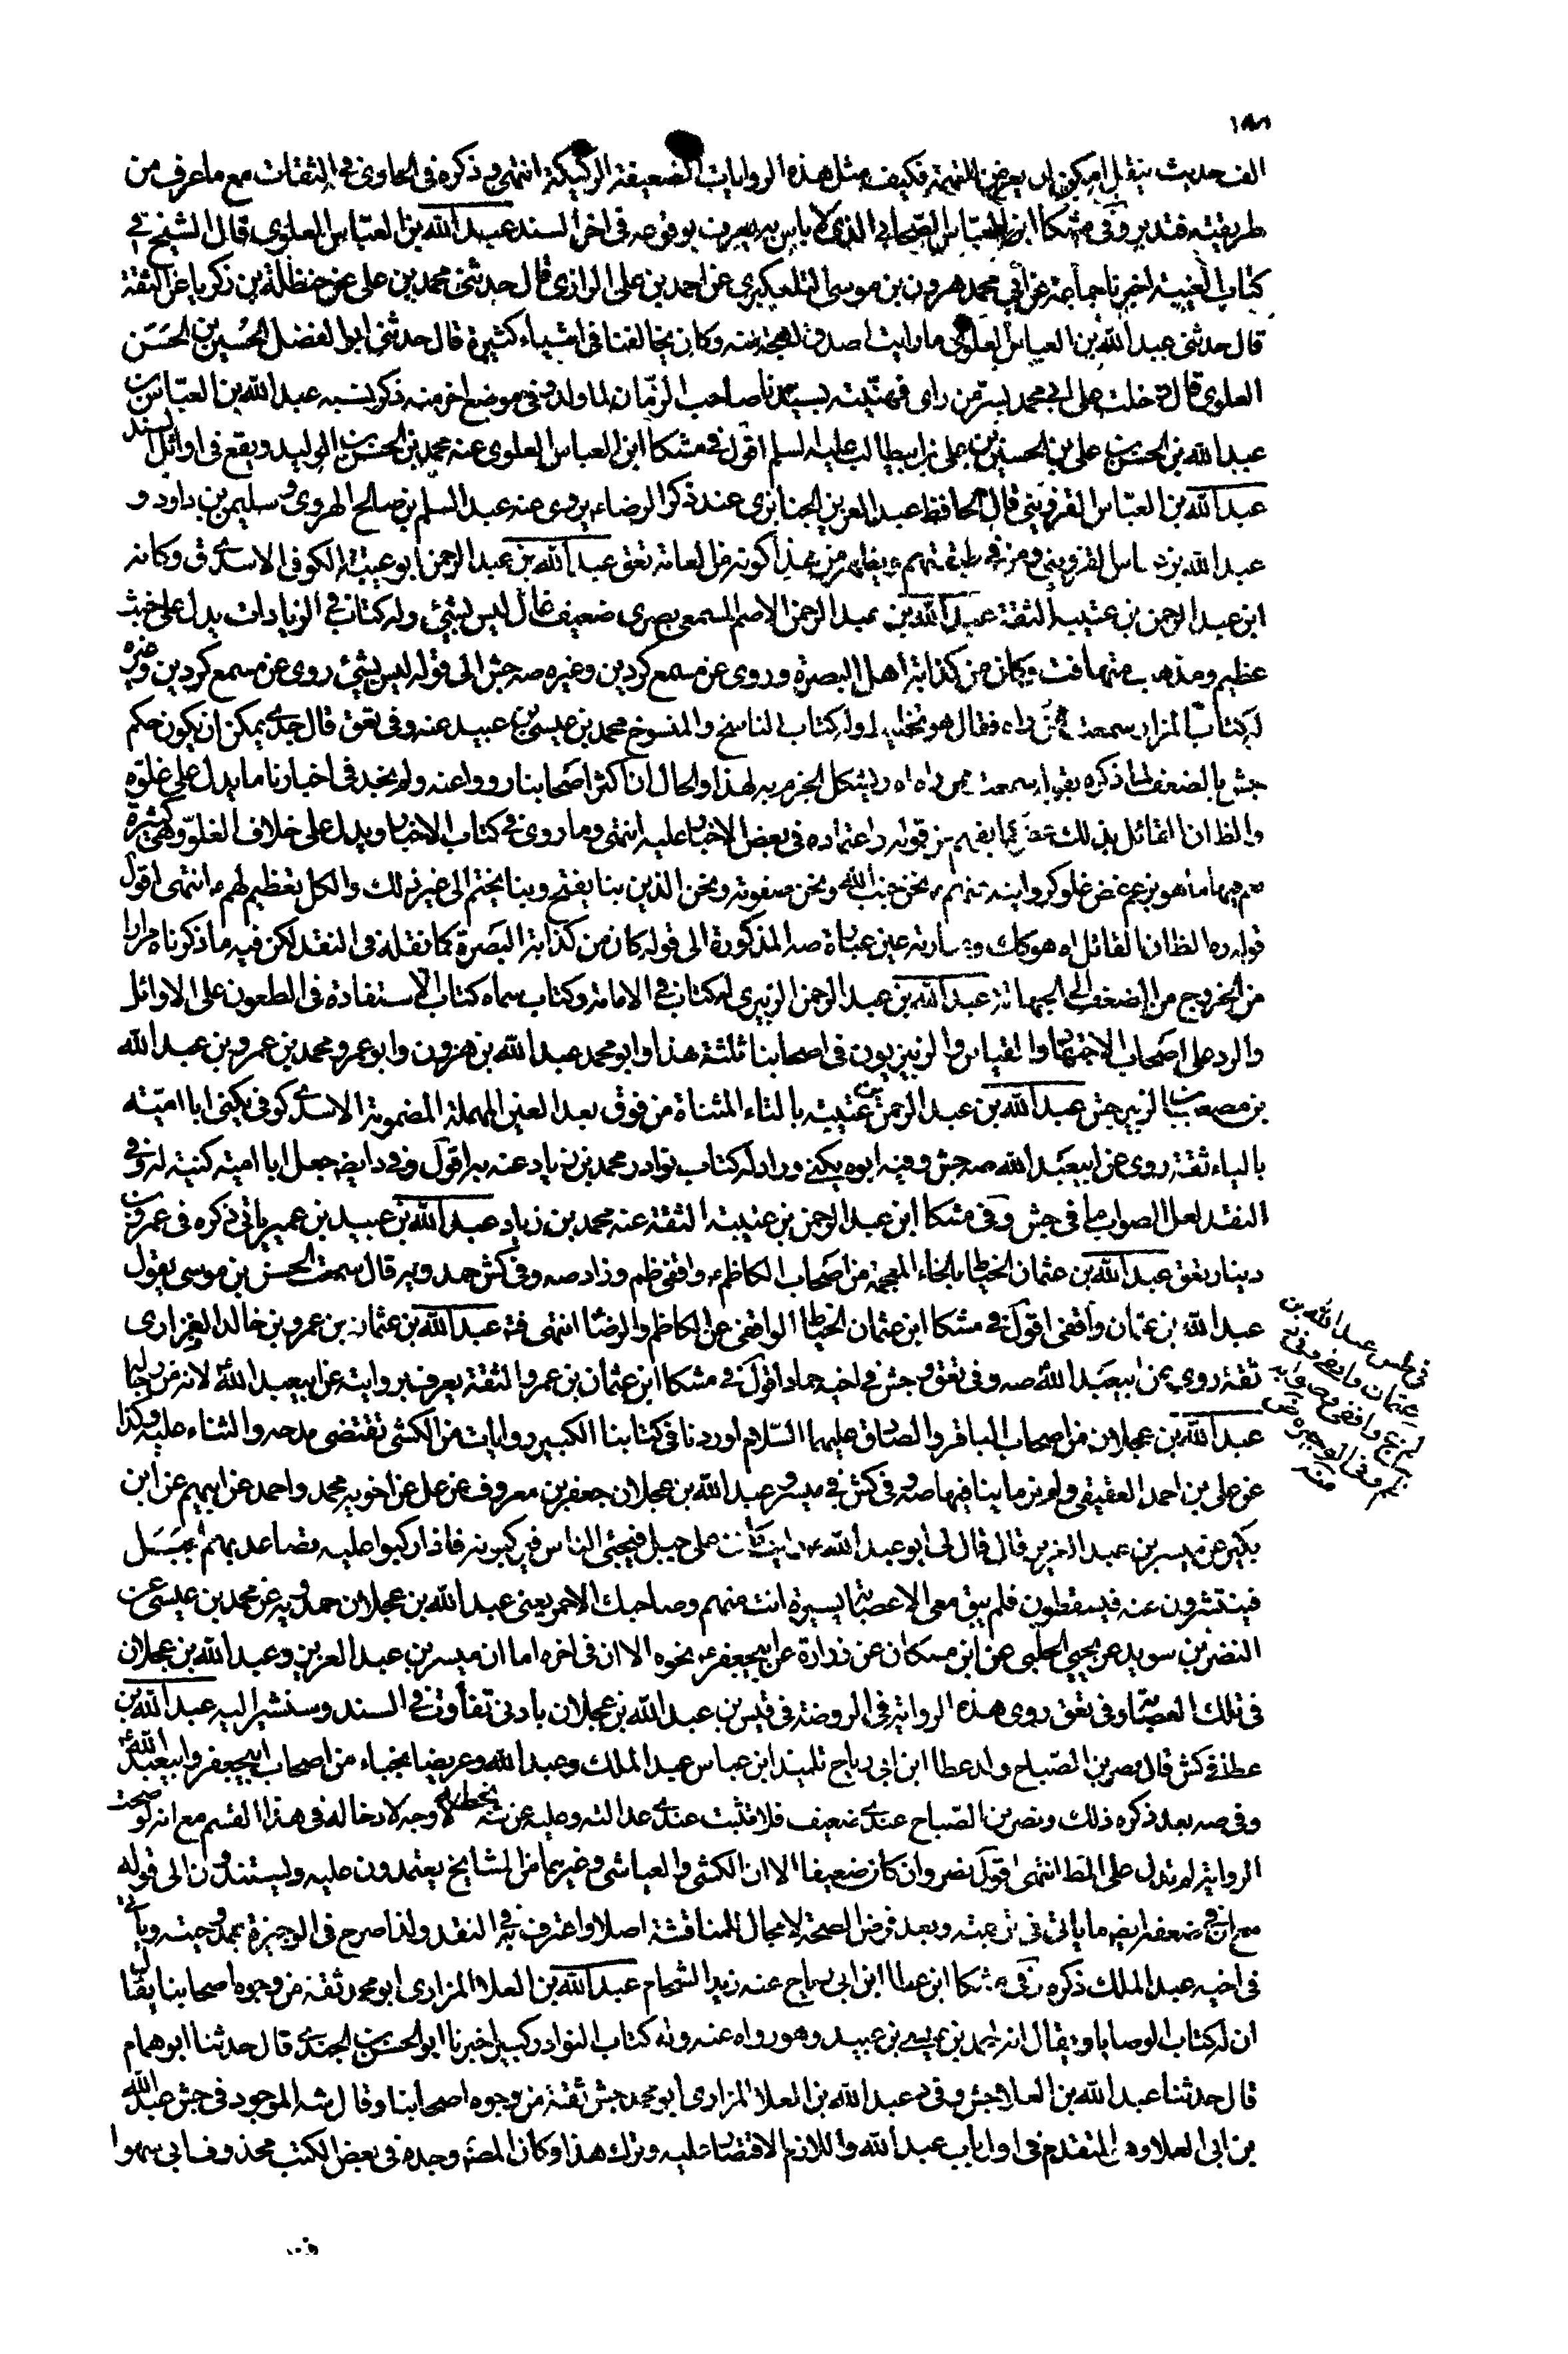 الف حديث ينقل لم يكن ان يعرض للتهمة فكيف مثل هذه الروايات الضعيفة الركيكة انتهى وذكره في الحاوي في الثقات مع ما عرف من
طريقته فتدبر وفي مشكا ابن العباس الذي لا باس به يعرف بوقوعه في اخر السند عبد الله بن العباس العلوي قال الشيخ في
كتاب الغيبة اخبرنا جماعة عن ابي محمد هرون بن موسى التلعكبري عن احمد بن علي الرازي قال حدثني محمد بن علي عن حنظلة بن زكريا عن الثقة
قال حدثني عبد الله بن العباس العلوي ما رايت اصدق لهجة منه وكان يخالفنا في اشياء كثيرة قال حدثني ابو الفضل الحسين بن الحسن
العلوي قال دخلت على ابي محمد بسر من راى فهنيته بسيدنا صاحب الزمان لما ولد وفي موضع اخر منه ذكر نسبه عبد الله بن العباس بن
عبد الله بن الحسن بن علي بن الحسين بن علي بن ابيطالب عليه السلم اقول في مشكا ابن العباس العلوي عنه محمد بن الحسن بن الوليد ويقع في اوائل السند
عبد الله بن العباس القزويني قال الحافظ عبد العزيز الجنابزي عند ذكر الرضاء يروي عنه عبد السلم بن صالح الهروي وسليمن بن داود و
عبد الله بن العباس القزويني ومن في طبقتهم ويظهر من هذا كونه من العامة تعق عبد الله بن عبد الرحمن ابو عتيبة الكوفي الاسدي ق وكانه
ابن عبد الرحمن بن عتيبة الثقة عبد الله بن عبد الرحمن الاصم المسمعي بصري ضعيف غال ليس بشئ وله كتاب في الزيارات يدل على خبث
عظيم ومذهب متهافت وكان من كذابة اهل البصرة وروى عن مسمع كردين وغيره صه جش الى قوله ليس بشئ روى عن مسمع كردين وغيره
له كتاب المزار سمعت ممن راه فقال هو تخليط وله كتاب الناسخ والمنسوخ محمد بن عيسى بن عبيد عنه وفي تعق قال جدي يمكن ان يكون حكم
جش بالضعف لما ذكره بقوله سمعت ممن راه اه ويشكل الجزم به لهذا والحال ان اكثر اصحابنا رووا عنه ولم نجد في اخبارنا ما يدل على غلوه
والظ ان القائل بذلك غض كما يفهم من قوله واعتماده في بعض الاخبار عليه انتهى وما روى في كتاب الاخبار ويدل على خلاف الغلو وهي كثيرة
نعم فيها ما هو بزعم غض غلو كروايته عنهم نحن جنب الله ونحن صفوته ونحن الذين بنا يفتح وبنا يختم الى غير ذلك والكل تعظيم لهم انتهى اقول
قوله ره الظ ان القائل اه هو كك وعبارته عين عبارة صه المذكورة الى قوله كان من كذابة البصرة كما نقله في النقد لكن فيه ما ذكرناه مرارا
من الخروج من الضعف الى الجهالة عبد الله بن عبد الرحمن الزبيري له كتاب في الامامة وكتاب سماه كتاب الاستفادة في الطعون على الاوائل
والرد على اصحاب الاجتهاد والقياس والزبيريون في اصحابنا ثلثة هذا وابو محمد عبد الله بن هرون وابو عمرو محمد بن عمرو بن عبد الله
بن مصعب بن الزبير جش عبد الله بن عبد الرحمن بن عتيبة بالتاء المثناة من فوق بعد العين المهملة المضمومة الاسدي كوفي يكنى ابا امية
بالياء ثقة روى عن ابيعبد الله صه جش وفيه ابوه يكنى وزاد له كتاب نوادر محمد بن زياد عنه به اقول وفي د ايضا جعل ابا امية كنية له وفي
النقد لعل الصواب ما في جش وفي مشكا ابن عبد الرحمن بن عتيبة الثقة عنه محمد بن زياد عبد الله بن عبيد بن عمير ياتي ذكره في عمرو بن
دينار تعق عبد الله بن عثمان الخياط بالخاء المعجمة من اصحاب الكاظم واقفي ظم وزاد صه وفي كش حمدويه قال سمعت الحسن بن موسى يقول
عبد الله بن عثمان واقفي اقول في مشكا ابن عثمان الخياط الواقفي عن الكاظم والرضا انتهى فته عبد الله بن عثمان بن عمرو بن خالد الفزاري
ثقة روى عن ابيعبد الله صه وفي تعق وجش في اخيه حماد اقول في مشكا ابن عثمان بن عمرو الثقة يعرف بروايته عن ابيعبد الله لانه من رجاله
عبد الله بن عجلان من اصحاب الباقر والصادق عليهما السلام اوردنا في كتابنا الكبير روايات من الكشي تقتضي مدحه والثناء عليه وكذا
عن علي بن احمد العقيقي ولم نر ما ينافيها صه وفي كش في ميسر وعبد الله بن عجلان جعفر بن معروف عن علي عن اخويه محمد واحمد عن ابيهم عن ابن
بكير عن ميسر بن عبد العزيز قال قال لي ابو عبد الله رايت كانت على جبل فيجئ الناس فيركبونه فاذا ركبوا عليه تصاعد بهم الجبل
فينتثرون عنه فيسقطون فلم يبق معي الا عصابة يسيرة انت منهم وصاحبك الاحمر يعني عبد الله بن عجلان حمدويه عن محمد بن عيسى عن
النضر بن سويد عن يحيى الحلبي عن ابن مسكان عن زرارة عن ابيجعفر نحوه الا ان في اخره اما ان ميسر بن عبد العزيز وعبد الله بن عجلان
في تلك العصابة وفي تعق روى هذه الرواية في الروضة في قيس بن عبد الله بن عجلان بادنى تفاوت في السند وسنشير اليه عبد الله بن
عطا في كش قال نصر بن الصباح ولد عطا ابن ابي رباح تلميذ ابن عباس عبد الملك وعبد الله وعريفا نجباء من اصحاب ابيجعفر وابيعبد الله
وفي صه بعد ذكره ذلك ونصر بن الصباح عندي ضعيف فلا تثبت عندي عدالته وعليه عن شه بخطه لا وجه لادخاله في هذا القسم مع انه لو صحت
الرواية لم تدل على المط انتهى اقول نصر وان كان ضعيفا الا ان الكشي والعياشي وغيرهما من المشايخ يعتمدون عليه ويستندون الى قوله
مع ان في ضعفه ايضا ما ياتي في ترجمته وبعد فرض الصحة لا مجال للمناقشة اصلا واعترف به في النقد ولذا صرح في الوجيزة بممدوحيته وياتي
في اخيه عبد الملك ذكره وفي مشكا ابن عطا ابن ابي رباح عنه زيد الشحام عبد الله بن العلا المزاري ابو محمد ثقة من وجوه اصحابنا يقال
ان له كتاب الوصايا ويقال انه لمحمد بن عيسى بن عبيد وهو رواه عنه وله كتاب النوادر كبير اخبرنا ابو الحسن بن الجندي قال حدثنا ابو همام
قال حدثنا عبد الله بن العلا جش وفي د عبد الله بن العلا المزاري ابو محمد جش ثقة من وجوه اصحابنا وقال شه الموجود في جش عبد الله
بن ابي العلا وهو المتقدم في اول باب عبد الله واللازم الاقتصار عليه وترك هذا وكان المصنف وجده في بعض الكتب محذوف ابي سهوا
في طس عبد الله بن
عثمان واقفي وفي
منه